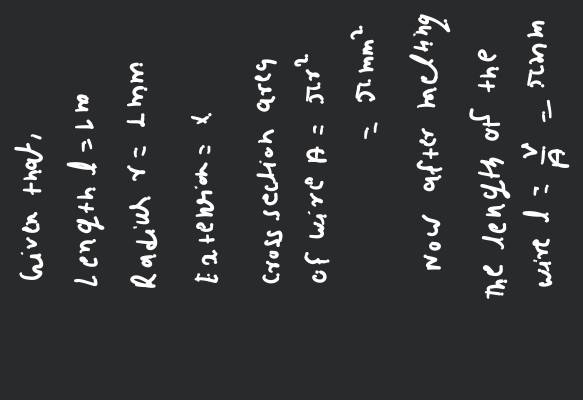 Given that,
Length l = 1m
Radius r = 1mm
Extension = x
Cross section area
of wire A = πr²
= πmm²
Now after melting
the length of the
wire l = V/A = πmm